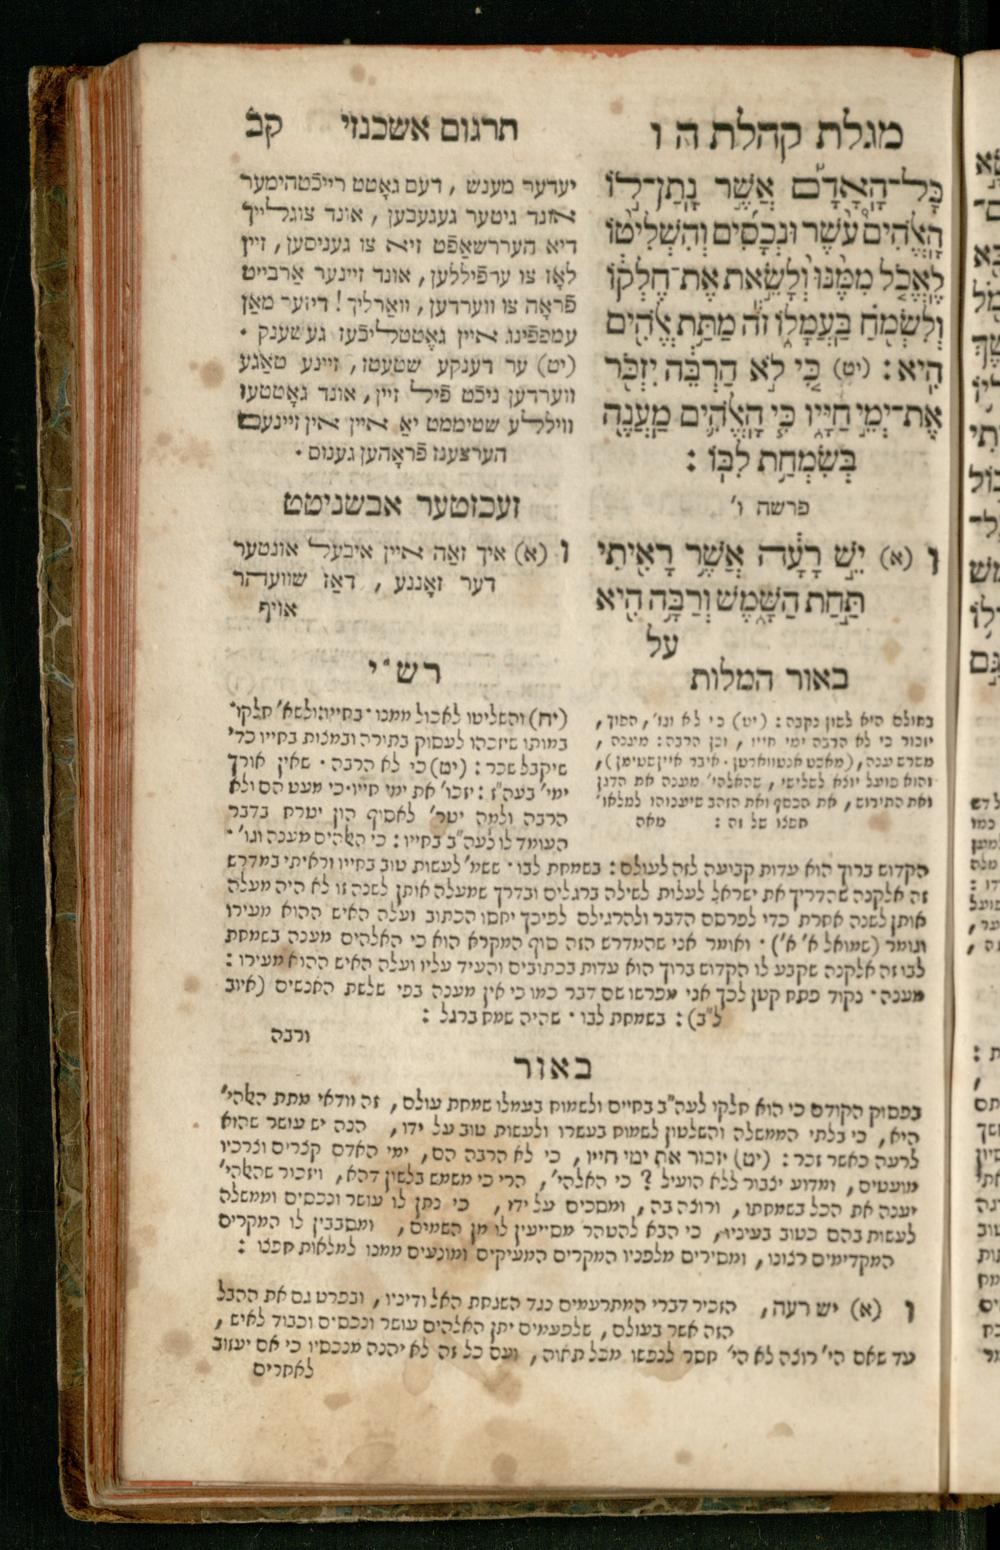 מגלת קהלת ה ו
כָּל־הָאָדָם אֲשֶׁר נָתַן־לוֹ
הָאֱלֹהִים עֹשֶׁר וּנְכָסִים וְהִשְׁלִיטוֹ
לֶאֱכֹל מִמֶּנּוּ וְלָשֵׂאת אֶת־חֶלְקוֹ
וְלִשְׂמֹחַ בַּעֲמָלוֹ זֹה מַתַּת אֱלֹהִים
הִיא : (יט) כִּי לֹא הַרְבֵּה יִזְכֹּר
אֶת־יְמֵי חַיָּיו כִּי הָאֱלֹהִים מַעֲנֶה
בְּשִׂמְחַת לִבּוֹ :
פרשה ו'
ו (א) יֵשׁ רָעָה אֲשֶׁר רָאִיתִי
תַּחַת הַשָּׁמֶשׁ וְרַבָּה הִיא
על
תרגום אשכנזי קב
יעדער מענש , דעם גאָטט רייכֿטהימער
אונד גיטער געגעבען , אונד צוגלייך
דיא הערשאַפֿט זיא צו געניסען , זיין
לאָז צו ערפֿיללען , אונד זיינער אַרבייט
פֿראָה צו ווערדען , וואַרליך ! דיזער מאַן
עמפּפֿינג איין געטטליכֿעז געשענק .
(יט) ער דענקע שטעטז , זיינע טאַגע
ווערדען ניכֿט פֿיל זיין , אונד גאָטטעז
ווילללע שטיממט יאַ איין אין זיינעם
הערצענז פֿראָהען גענוס .
זעכזטער אבשניטט
ו (א) איך זאַה איין איבעל אונטער
דער זאָננע , דאַז שווער
אויף
באור המלות
בחולם היא לשון נקבה : (יט) כי לא וגו' , הפוך ,
יזכור כי לא הרבה ימי חייו , וכן הרבה : מענה ,
משרש ענה , (מאכט אנטווארטן . איבר איינשטימן) ,
והוא פועל יוצא לשלישי , שהאלהי' מענה את הדגן
ואת התירוש , את הכסף ואת הזהב שיענוהו למלאו'
חפצו של זה : מאה
רש"י
(יח) והשליטו לאכול ממנו . בחייו : ולשא' חלקו .
במותו שיזכהו לעסוק בתורה ובמצות בחייו כדי
שיקבל שכר : (יט) כי לא הרבה . שאין אורך
ימי' בעה"ז : יזכו' את ימי חייו . כי מעט הם ולא
הרבה ולמה יטר' לאסוף הון יטרח בדבר
העומד לו לעה"ב בחייו : כי האלהים מענה וגו' .
הקדוש ברוך הוא עדות קביעה לזה לעולם : בשמחת לבו . ששמ' לעשות טוב בחייו וראיתי במדרש
זה אלקנה שהדריך את ישראל לעלות לשילה ברגלים ובדרך שמעלה אותן לשנה זו לא היה מעלה
אותן לשנה אחרת כדי לפרסם הדבר ולהרגילם לפיכך יחסו הכתוב ועלה האיש ההוא מעירו
וגומר (שמואל א' א') . ואומר אני שהמדרש הזה סוף המקרא הוא כי האלהים מענה בשמחת
לבו זה אלקנה שקבע לו הקדוש ברוך הוא עדות בכתובים והעיד עליו ועלה האיש ההוא מעירו :
מענה . נקוד פתח קטן לכך אני מפרשו שם דבר כמו כי אין מענה בפי שלשת האנשים (איוב
ל"ב) : בשמחת לבו . שהיה שמח ברגל :
ורבה
באור
בפסוק הקודם כי הוא חלקו לעה"ב בחיים ולשמוח בעמלו שמחת עולם , זה וודאי מתת האלהי'
היא , כי בלתי הממשלה והשלטון לשמוח בעשרו ולעשות טוב על ידו , הנה יש עושר שהוא
לרעה כאשר זכר : (יט) יזכור את ימי חייו , כי לא הרבה הם , ימי האדם קצרים וצרכיו
מועטים , ומדוע יצבור ללא הועיל ? כי האלהי' , הרי כי משמש בלשון דהא , ויזכור שהאלהי'
יענה את הכל בשמחתו , ורוצה בה , ומסכים על ידו , כי נתן לו עושר ונכסים וממשלה
לעשות בהם כטוב בעיניו , כי הבא להטהר מסייעין לו מן השמים , ומסבבין לו המקרים
המקדימים רצונו , ומסירים מלפניו המקרים המעיקים ומונעים ממנו למלאות חפצו :
ו (א) יש רעה , הזכיר דברי המתרעמים כנגד השגחת האל ודיניו , ובפרט גם את ההבל
הזה אשר בעולם , שלפעמים יתן האלהים עושר ונכסים וכבוד לאיש ,
עד שאם הי' רוצה לא הי' חסר לנפשו מכל תאוה , ועם כל זה לא יהנה מנכסיו כי אם יעזוב
לאחרים